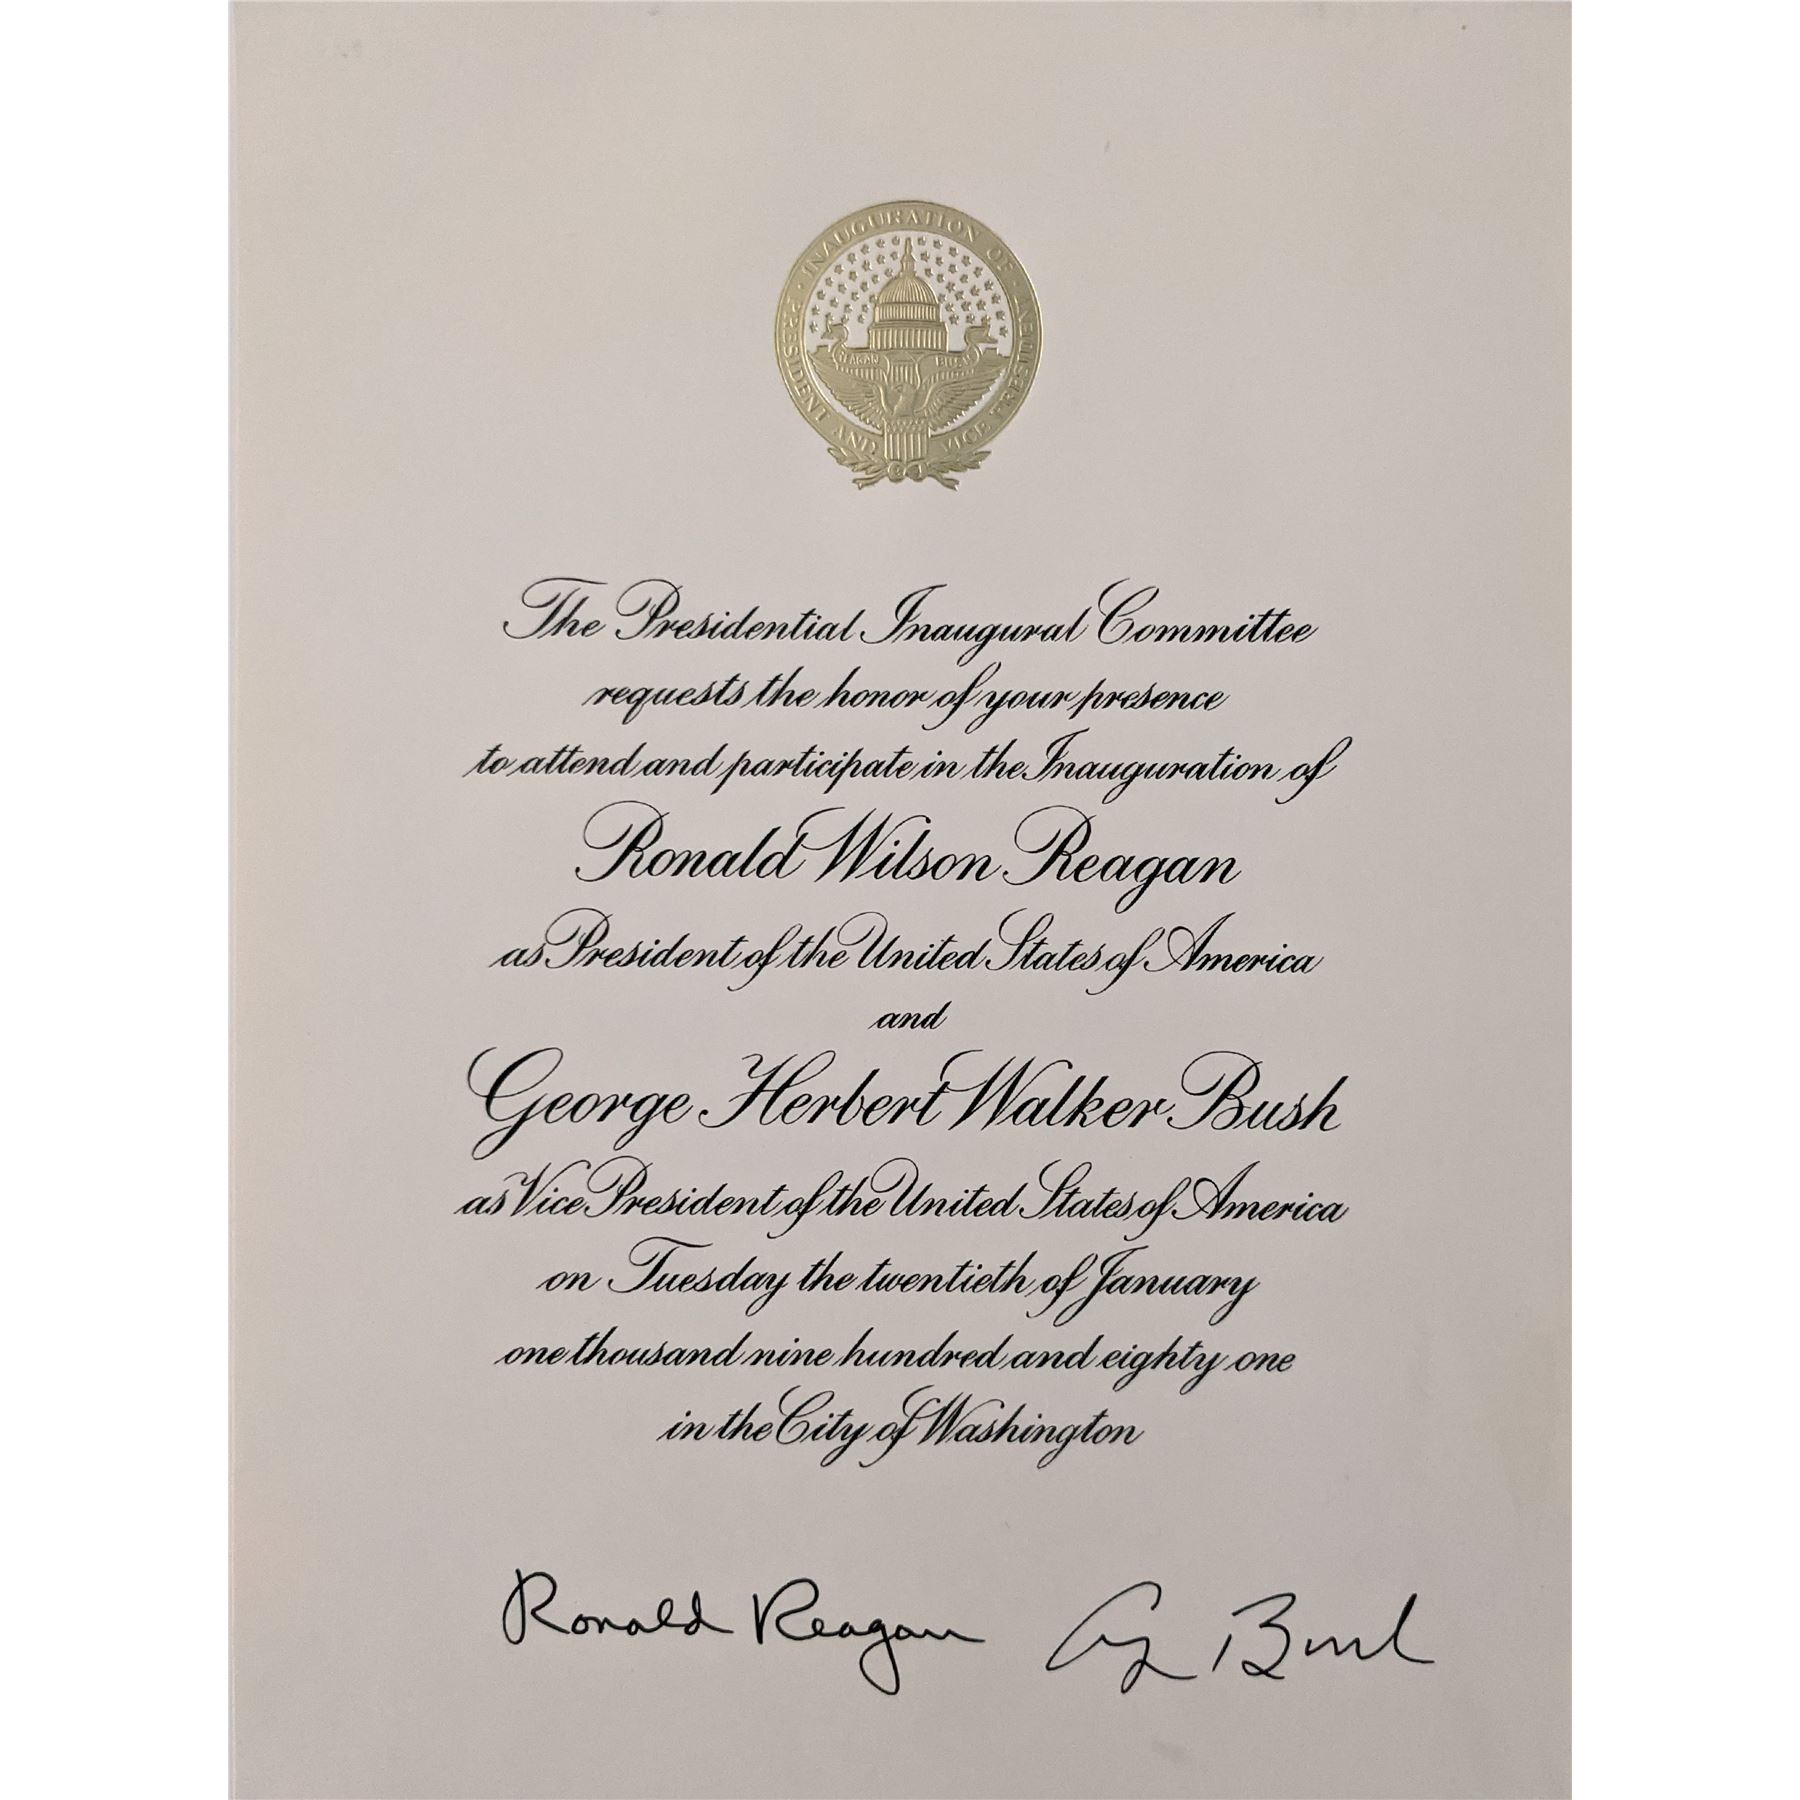 INAUGURATION OF
PRESIDENT AND VICE PRESIDENT
REAGAN BUSH
The Presidential Inaugural Committee
requests the honor of your presence
to attend and participate in the Inauguration of
Ronald Wilson Reagan
as President of the United States of America
and
George Herbert Walker Bush
as Vice President of the United States of America
on Tuesday the twentieth of January
one thousand nine hundred and eighty one
in the City of Washington
Ronald Reagan G Bush